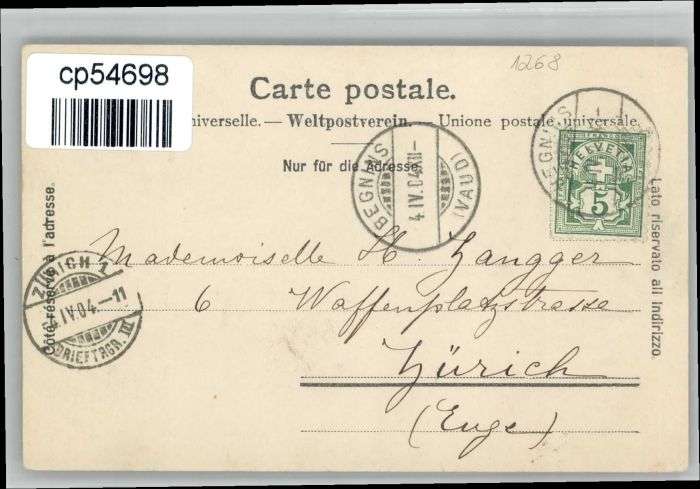 1268
cp54698
Carte postale.
niverselle. — Weltpostverein. — Unione postale universale
Nur für die Adresse.
BEGNINS
4.IV.04.XII-
(VAUD)
BEGNINS
HELVETIA
5
Côté réservé à l'adresse.
Lato riservato all indirizzo.
ZÜRICH 1
IV.04.-11
BRIEFTRGR. III
Mademoiselle H. Zangger
6 Waffenplatzstrasse
Zürich
(Enge)